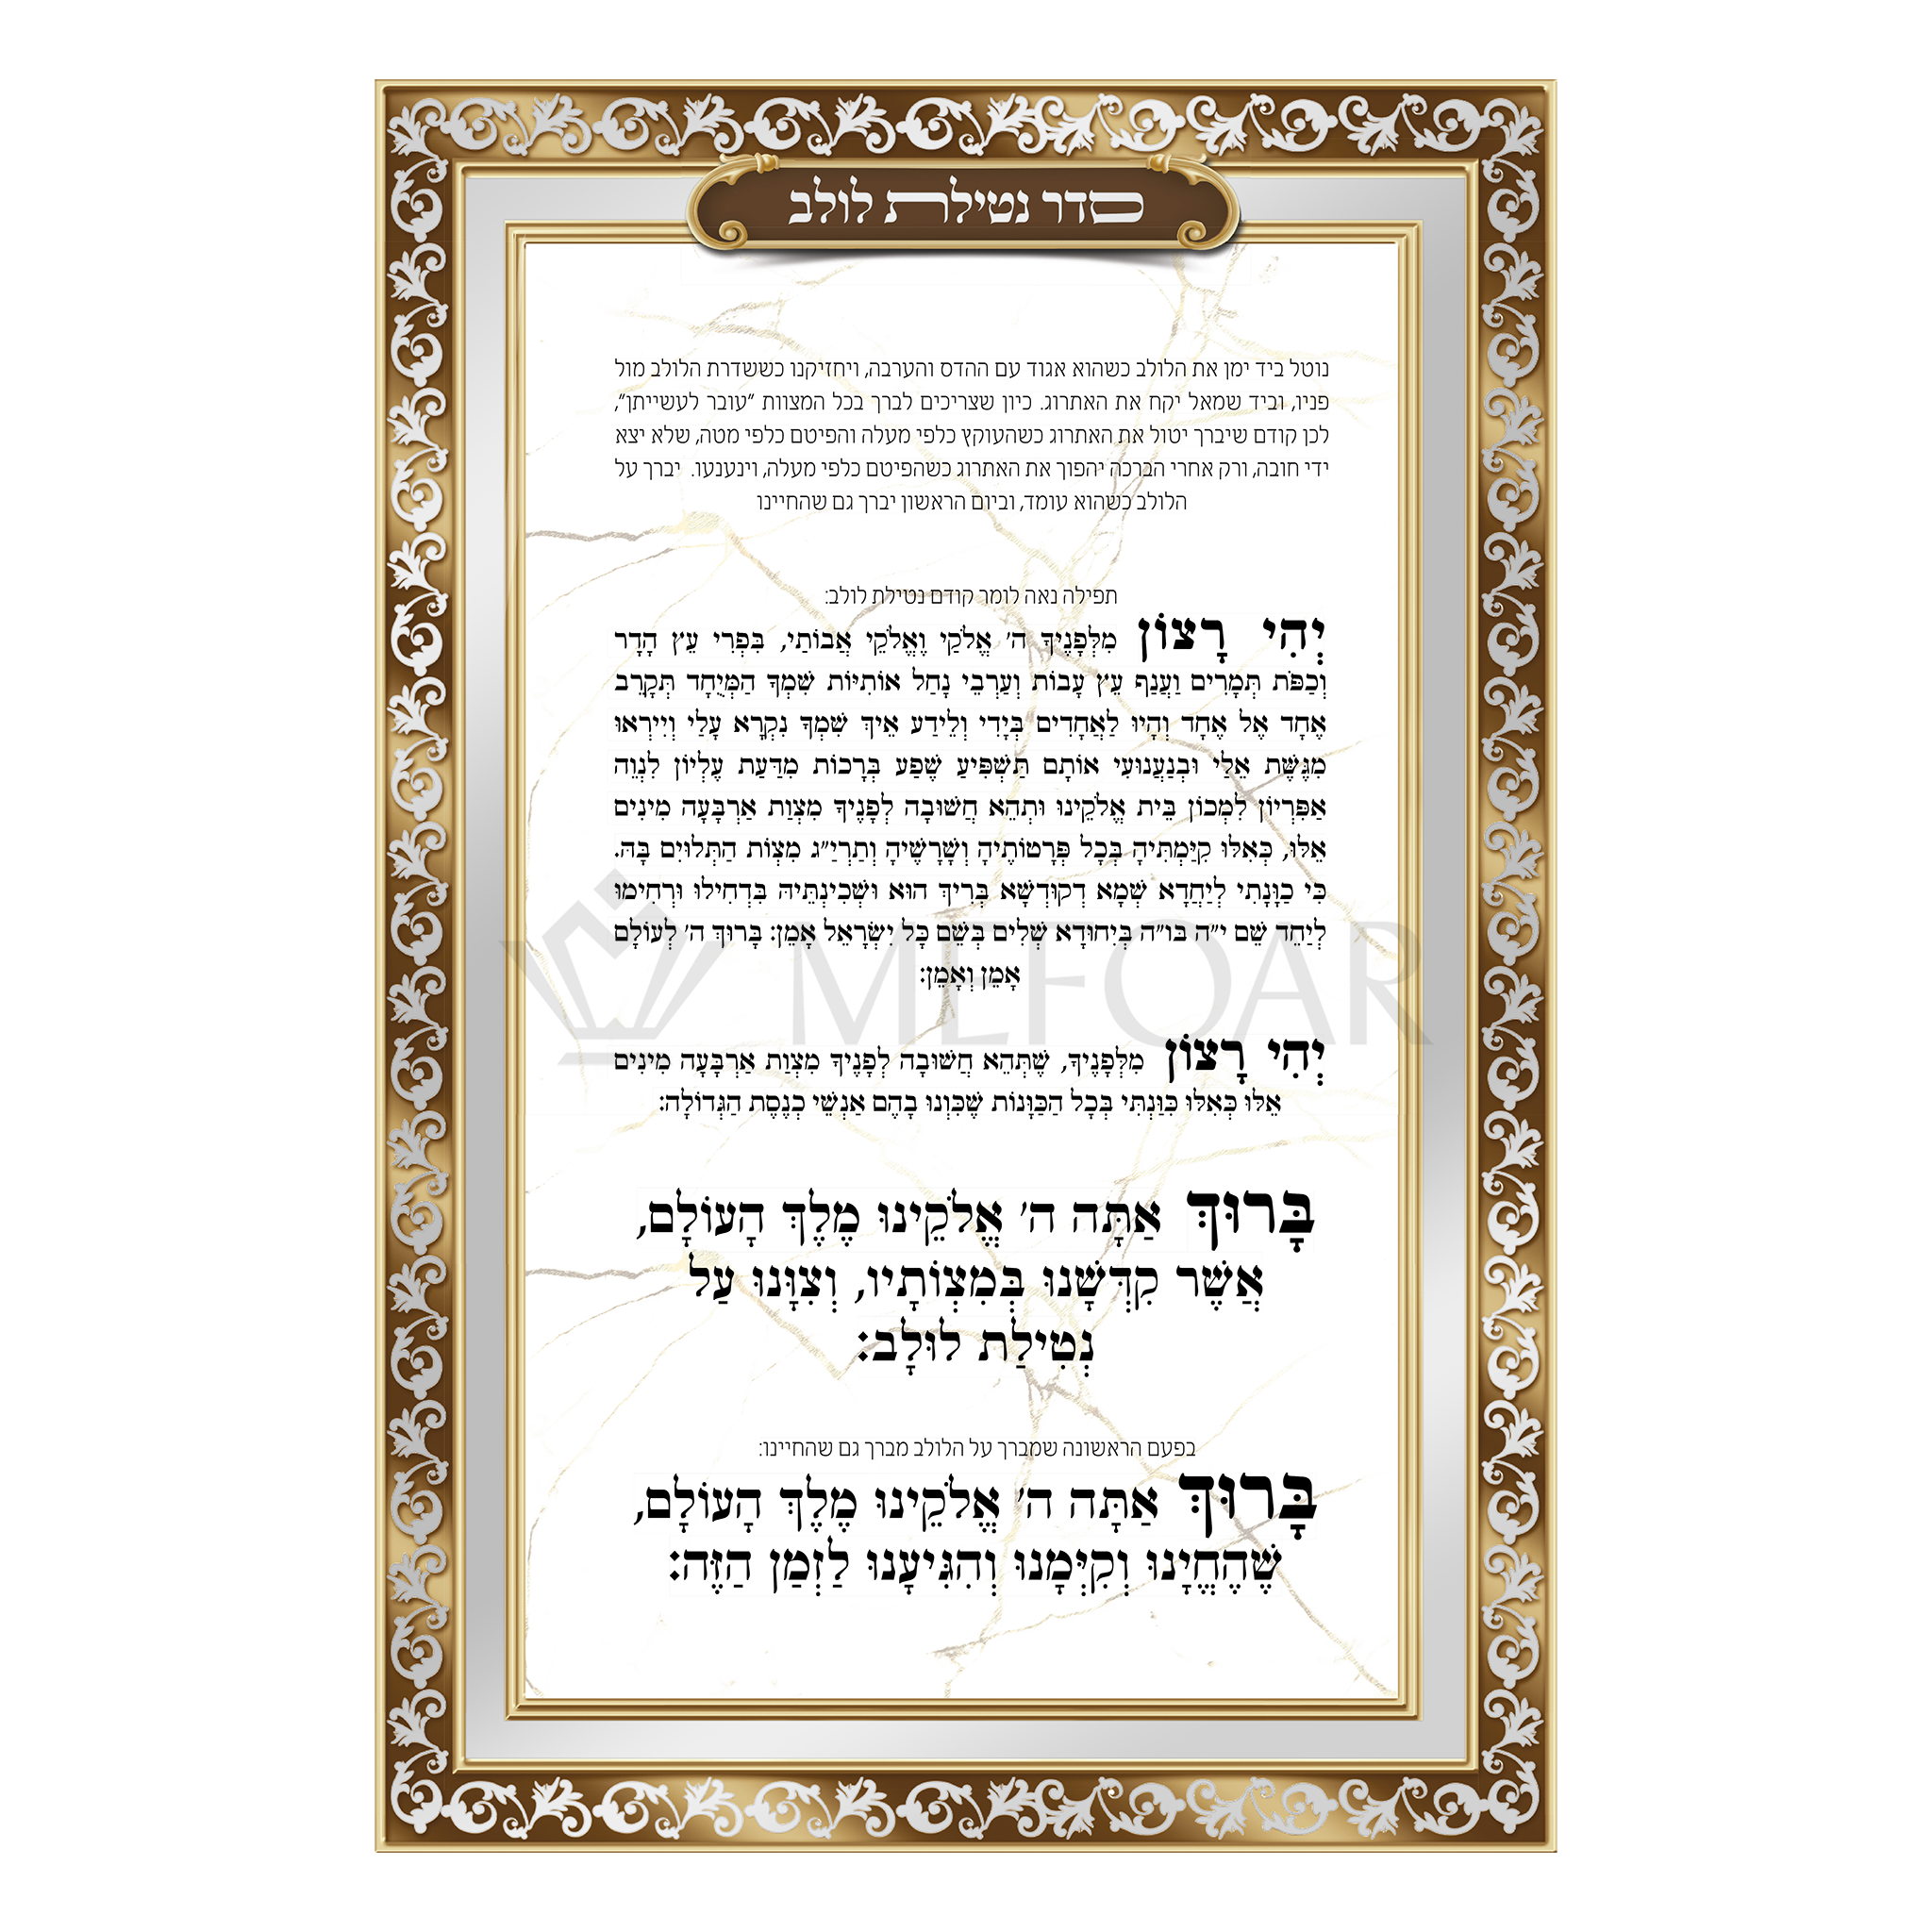 סדר נטילת לולב
נוטל ביד ימין את הלולב כשהוא אגוד עם ההדס והערבה, ויחזיקנו כששדרת הלולב מול
פניו, וביד שמאל יקח את האתרוג. כיון שצריכים לברך בכל המצוות "עובר לעשייתן",
לכן קודם שיברך יטול את האתרוג כשהעוקץ כלפי מעלה והפיטם כלפי מטה, שלא יצא
ידי חובה, ורק אחרי הברכה יהפוך את האתרוג כשהפיטם כלפי מעלה, וינענעו. יברך על
הלולב כשהוא עומד, וביום הראשון יברך גם שהחיינו
תפילה נאה לומר קודם נטילת לולב:
יְהִי רָצוֹן מִלְּפָנֶיךָ ה' אֱלֹקַי וֶאֱלֹקֵי אֲבוֹתַי, בִּפְרִי עֵץ הָדָר
וְכַפֹּת תְּמָרִים וַעֲנַף עֵץ עָבוֹת וְעַרְבֵי נָחַל אוֹתִיּוֹת שִׁמְךָ הַמְּיֻחָד תְּקָרֵב
אֶחָד אֶל אֶחָד וְהָיוּ לַאֲחָדִים בְּיָדִי וְלֵידַע אֵיךְ שִׁמְךָ נִקְרָא עָלַי וְיִירְאוּ
מִגֶּשֶׁת אֵלַי וּבְנַעֲנוּעִי אוֹתָם תַּשְׁפִּיעַ שֶׁפַע בְּרָכוֹת מִדַּעַת עֶלְיוֹן לִנְוֵה
אַפִּרְיוֹן לִמְכוֹן בֵּית אֱלֹקֵינוּ וּתְהֵא חֲשׁוּבָה לְפָנֶיךָ מִצְוַת אַרְבָּעָה מִינִים
אֵלּוּ, כְּאִלּוּ קִיַּמְתִּיהָ בְּכָל פְּרָטוֹתֶיהָ וְשָׁרָשֶׁיהָ וְתַרְיַ"ג מִצְוֹת הַתְּלוּיִם בָּהּ.
כִּי כַוָּנָתִי לְיַחֲדָא שְׁמָא דְקוּדְשָׁא בְּרִיךְ הוּא וּשְׁכִינְתֵּיהּ בִּדְחִילוּ וּרְחִימוּ
לְיַחֵד שֵׁם י"ה בו"ה בְּיִחוּדָא שְׁלִים בְּשֵׁם כָּל יִשְׂרָאֵל אָמֵן: בָּרוּךְ ה' לְעוֹלָם
אָמֵן וְאָמֵן:
MEFOAR
יְהִי רָצוֹן מִלְּפָנֶיךָ, שֶׁתְּהֵא חֲשׁוּבָה לְפָנֶיךָ מִצְוַת אַרְבָּעָה מִינִים
אֵלּוּ כְּאִלּוּ כִּוַּנְתִּי בְּכָל הַכַּוָּנוֹת שֶׁכִּוְּנוּ בָהֶם אַנְשֵׁי כְנֶסֶת הַגְּדוֹלָה:
בָּרוּךְ אַתָּה ה' אֱלֹקֵינוּ מֶלֶךְ הָעוֹלָם,
אֲשֶׁר קִדְּשָׁנוּ בְּמִצְוֹתָיו, וְצִוָּנוּ עַל
נְטִילַת לוּלָב:
בפעם הראשונה שמברך על הלולב מברך גם שהחיינו:
בָּרוּךְ אַתָּה ה' אֱלֹקֵינוּ מֶלֶךְ הָעוֹלָם,
שֶׁהֶחֱיָנוּ וְקִיְּמָנוּ וְהִגִּיעָנוּ לַזְּמַן הַזֶּה: